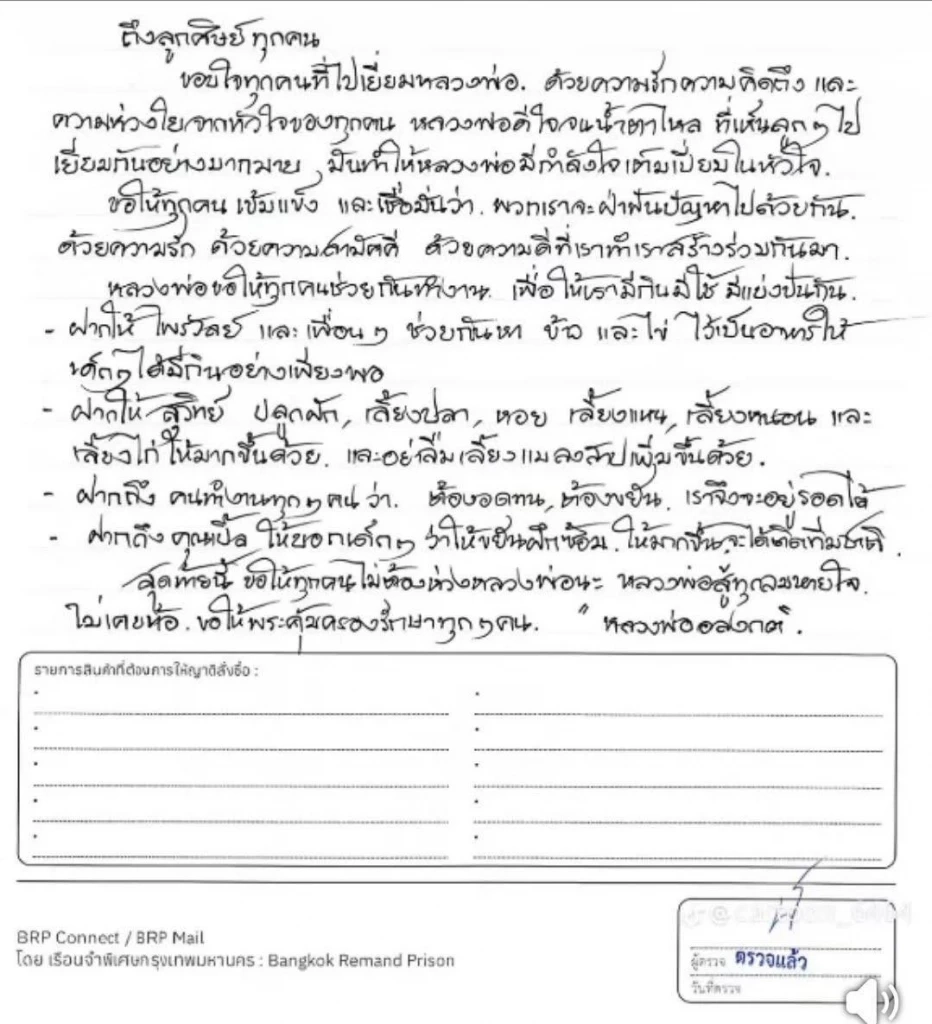 ถึงลูกศิษย์ ทุกคน
ขอบใจทุกคนที่ไปเยี่ยมหลวงพ่อ. ด้วยความรักความคิดถึง และ
ความห่วงใยจากหัวใจของทุกคน หลวงพ่อดีใจจนน้ำตาไหล ที่เห็นลูกๆ ไป
เยี่ยมกันอย่างมากมาย , มันทำให้หลวงพ่อมีกำลังใจเต็มเปี่ยมในหัวใจ.
ขอให้ทุกคน เข้มแข็ง และเชื่อมั่นว่า. พวกเราจะฝ่าฟันปัญหาไปด้วยกัน.
ด้วยความรัก ด้วยความสามัคคี ด้วยความดีที่เราทำเราสร้างร่วมกันมา.
หลวงพ่อขอให้ทุกคนช่วยกันทำงาน. เพื่อให้เรามีกินมีใช้ มีแบ่งปันกัน.
- ฝากให้ ไพรวัลย์ และเพื่อนๆ ช่วยกันหา ข้าว และไข่ ไว้เป็นอาหารให้
เด็กๆ ได้มีกินอย่างเพียงพอ
- ฝากให้ สุวิทย์ ปลูกผัก, เลี้ยงปลา, หอย เลี้ยงแหน, เลี้ยงหนอน และ
เลี้ยงไก่ ให้มากขึ้นด้วย. และอย่าลืมเลี้ยงแมลงสาปเพิ่มขึ้นด้วย.
- ฝากถึง คนทำงานทุกๆคน ว่า. ต้องอดทน, ต้องขยัน. เราจึงจะอยู่รอดได้
- ฝากถึง คุณเปิ้ล ให้บอกเด็กๆ ว่าให้ขยันฝึกซ้อม ให้มากขึ้น จะได้ติดทีมชาติ.
สุดท้ายนี้ ขอให้ทุกคนไม่ต้องห่วงหลวงพ่อนะ หลวงพ่อสู้ทุกลมหายใจ.
ไม่เคยท้อ. ขอให้พระคุ้มครองรักษาทุกๆคน. " หลวงพ่ออลงกต .
รายการสินค้าที่ต้องการให้ญาติสั่งซื้อ :
BRP Connect / BRP Mail
โดย เรือนจำพิเศษกรุงเทพมหานคร : Bangkok Remand Prison
ผู้ตรวจ ตรวจแล้ว
วันที่ตรวจ